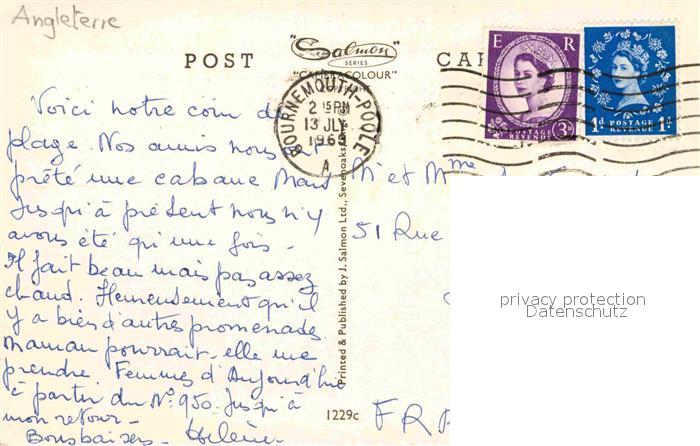 Angleterre
POST CAR
Salmon
SERIES
"CAMERACOLOUR"
BOURNEMOUTH-POOLE
2 15 PM
13 JLY
1965
A
E R
POSTAGE
REVENUE
3D
1D POSTAGE 1D
REVENUE
Voici notre coin de
plage. Nos amis nous ont
prêté une cabane mais
jusqu'à présent nous n'y
avons été qu'une fois -
Il fait beau mais pas assez
chaud. Heureusement qu'il
y a bien d'autres promenades.
Maman pourrait-elle me
prendre Femmes d'Aujourd'hui
à partir du N° 950. Jusqu'à
mon retour -
Bons baisers - Hélène
Printed & Published by J. Salmon Ltd., Sevenoaks
1229c
Mr et Mme
51 Rue
FRA
privacy protection
Datenschutz